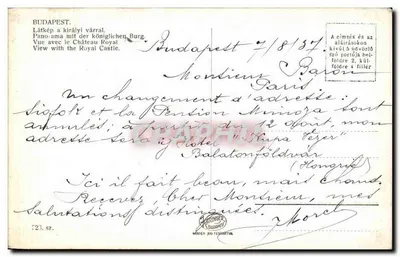 BUDAPEST.
Látkép a királyi várral.
Panorama mit der königlichen Burg.
Vue avec le Château Royal
View with the Royal Castle.
A címzés és az
aláírásokon
kívül 5 üdvözlő
szó portója bel-
földre 2, kül-
földre 4 fillér
Budapest 7/8/37.
Monsieur Baron
Paris
Un changement d'adresse:
Siofok et la Pension Mimoza sont
annulés; à du 12 Août, mon
adresse sera Hotel
Balatonföldvár
(Hongrie)
Ici il fait beau, mais chaud.
Recevez, Cher Monsieur, mes
salutations distinguées.
Morel
525. sz.